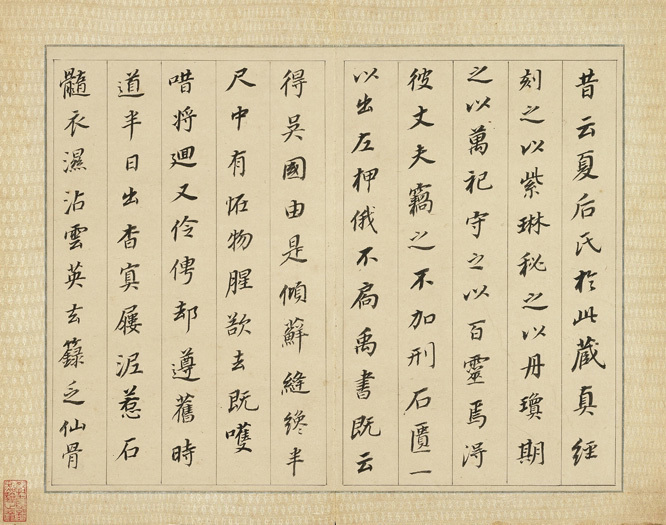 昔云夏后氏於此藏真經
刻之以紫琳秘之以丹瓊期
之以萬祀守之以百靈焉得
彼丈夫竊之不加刑石匱一
以出左神俄不扃禹書既云
得吳國由是傾蘚縫纔半
尺中有怪物腥欲去既嚄
唶將迴又伶俜却遵舊時
道半日出杳冥屨泥惹石
髓衣濕沾雲英玄籙乏仙骨